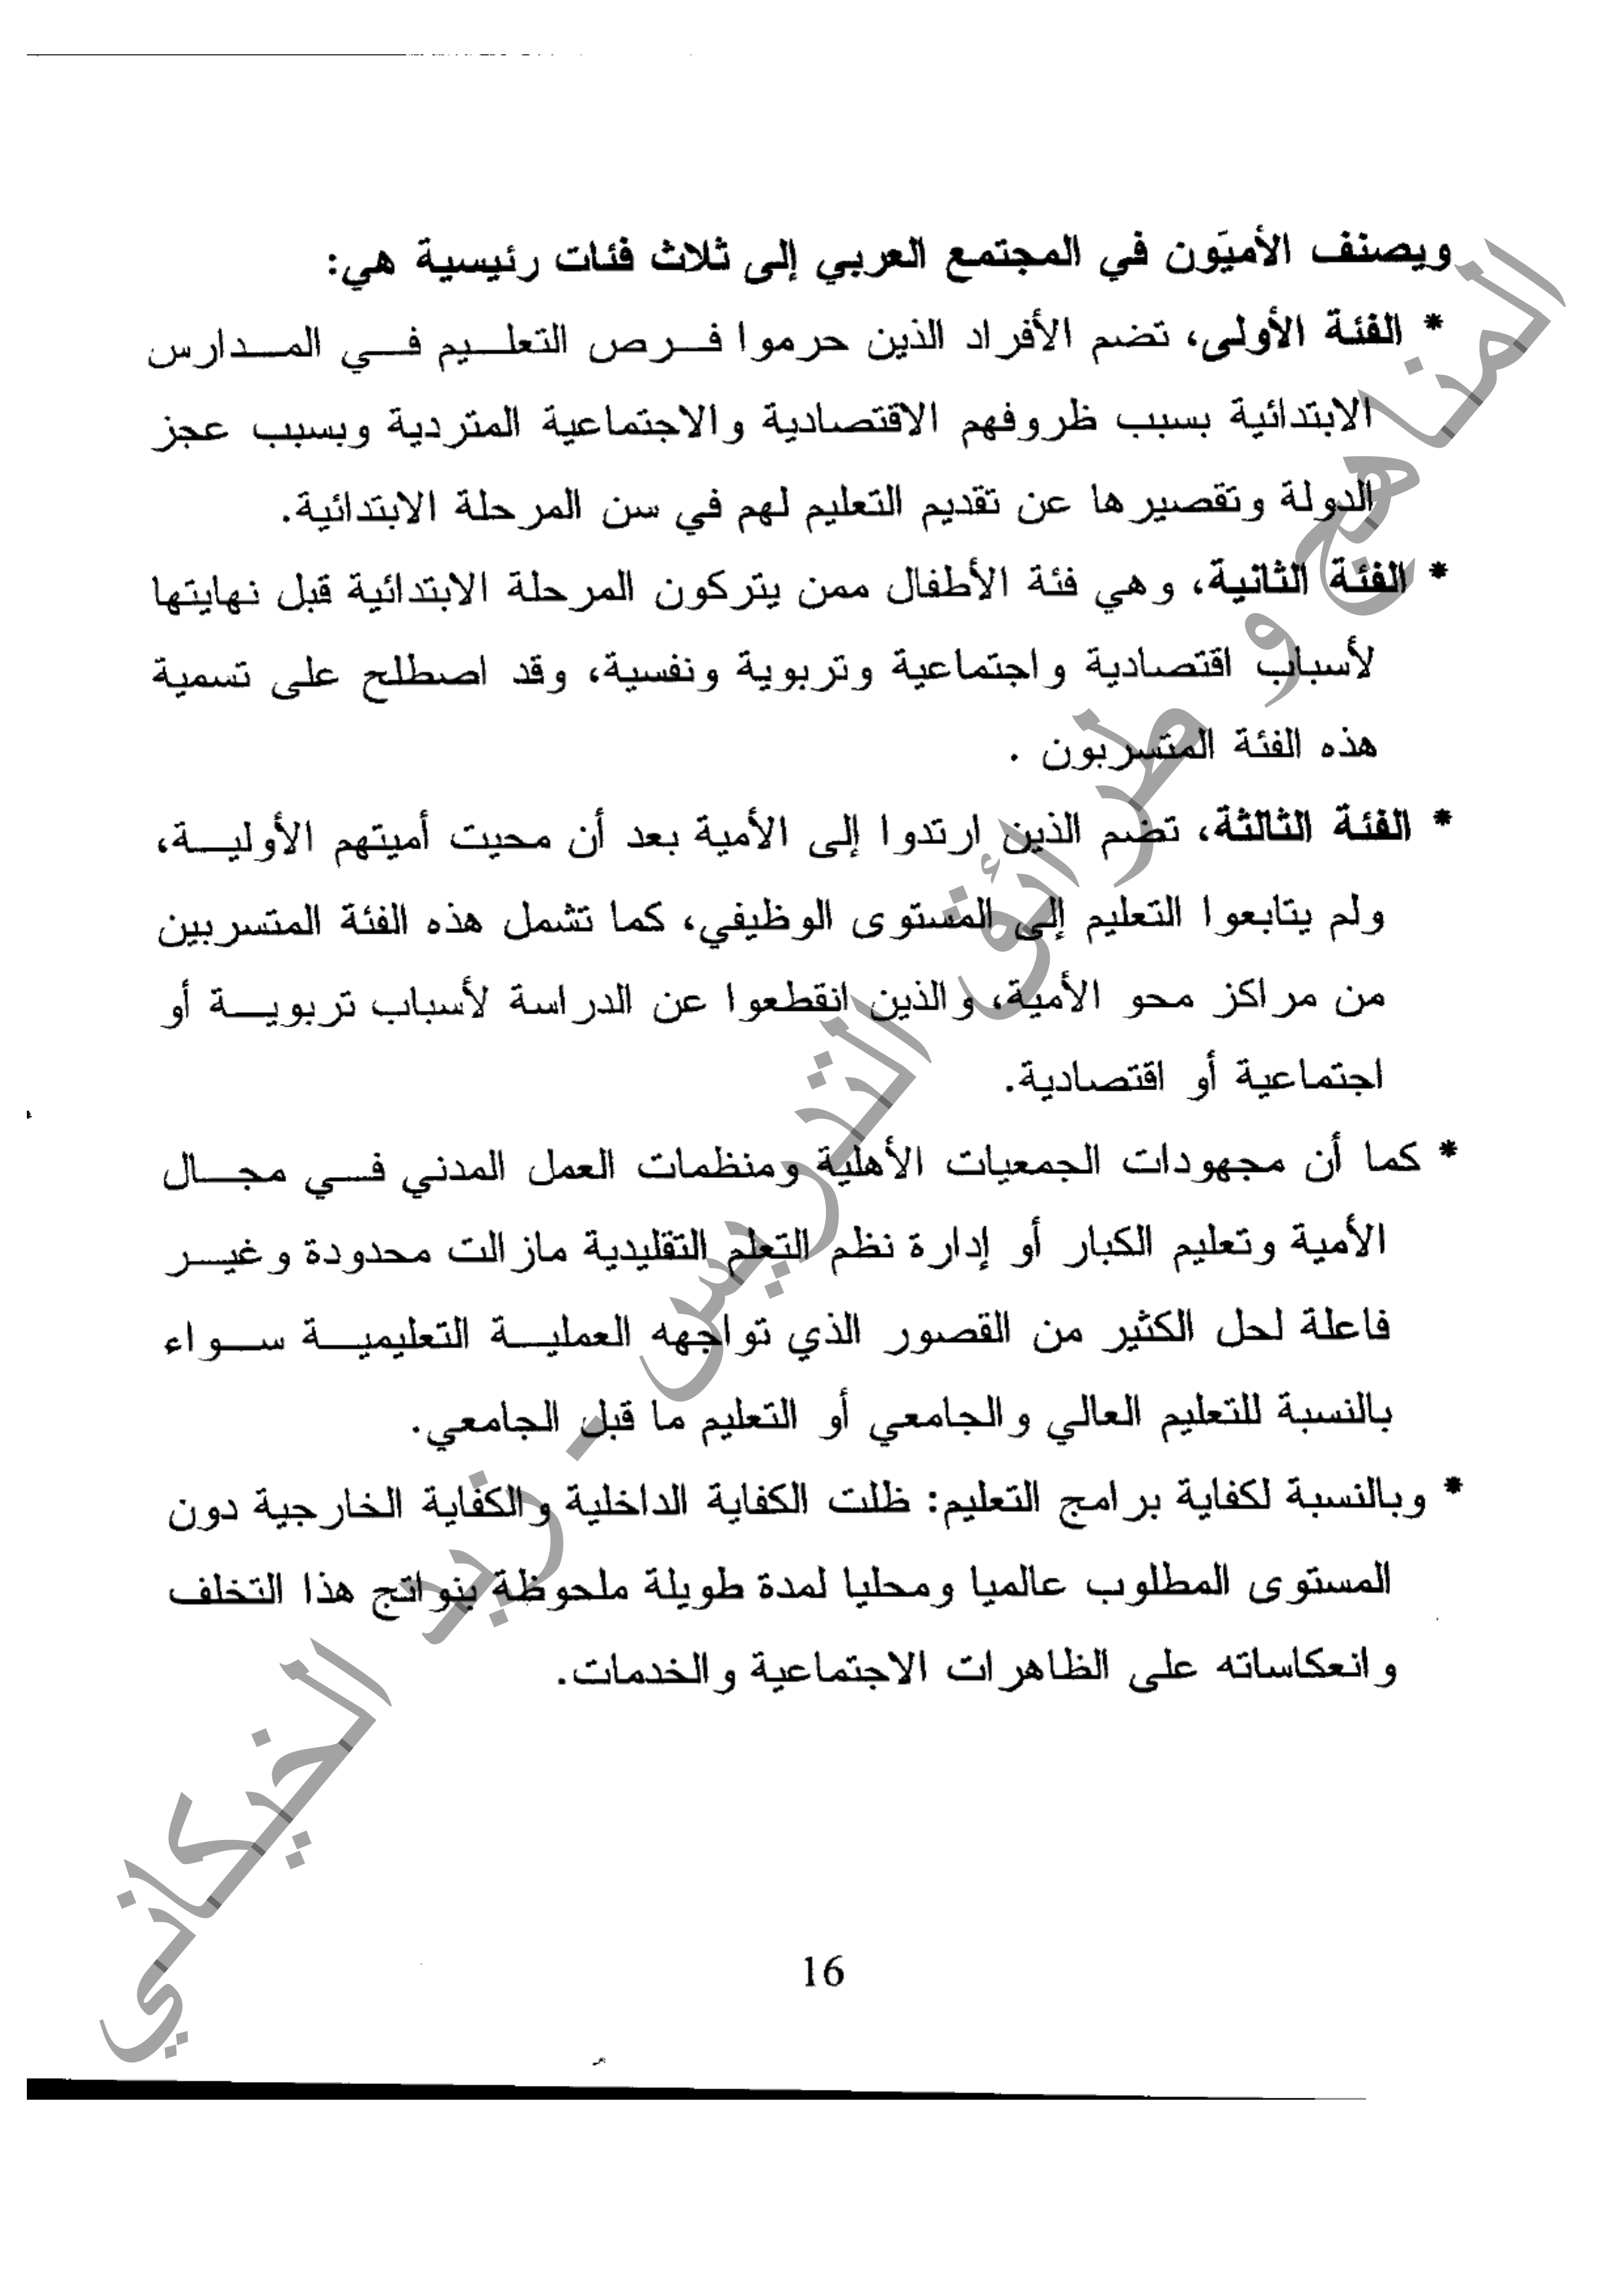 ويصنف الأميَون في المجتمع العربي إلى ثلاث فئات رئيسية هي:
* الفئة الأولى، تضم الأفراد الذين حرموا فرص التعليم في المدارس
الابتدائية بسبب ظروفهم الاقتصادية والاجتماعية المتردية وبسبب عجز
الدولة وتقصيرها عن تقديم التعليم لهم في سن المرحلة الابتدائية.
* الفئة الثانية، وهي فئة الأطفال ممن يتركون المرحلة الابتدائية قبل نهايتها
لأسباب اقتصادية واجتماعية وتربوية ونفسية، وقد اصطلح على تسمية
هذه الفئة المتسربون .
* الفئة الثالثة، تضم الذين ارتدوا إلى الأمية بعد أن محيت أميتهم الأولية،
ولم يتابعوا التعليم إلى المستوى الوظيفي، كما تشمل هذه الفئة المتسربين
من مراكز محو الأمية، والذين انقطعوا عن الدراسة لأسباب تربوية أو
اجتماعية أو اقتصادية.
* كما أن مجهودات الجمعيات الأهلية ومنظمات العمل المدني في مجال
الأمية وتعليم الكبار أو إدارة نظم التعلم التقليدية مازالت محدودة وغير
فاعلة لحل الكثير من القصور الذي تواجهه العملية التعليمية سواء
بالنسبة للتعليم العالي والجامعي أو التعليم ما قبل الجامعي.
* وبالنسبة لكفاية برامج التعليم: ظلت الكفاية الداخلية والكفاية الخارجية دون
المستوى المطلوب عالميا ومحليا لمدة طويلة ملحوظة بنواتج هذا التخلف
وانعكاساته على الظاهرات الاجتماعية والخدمات.
16
المناهج و طرائق التدريس - زيد الخيكاني